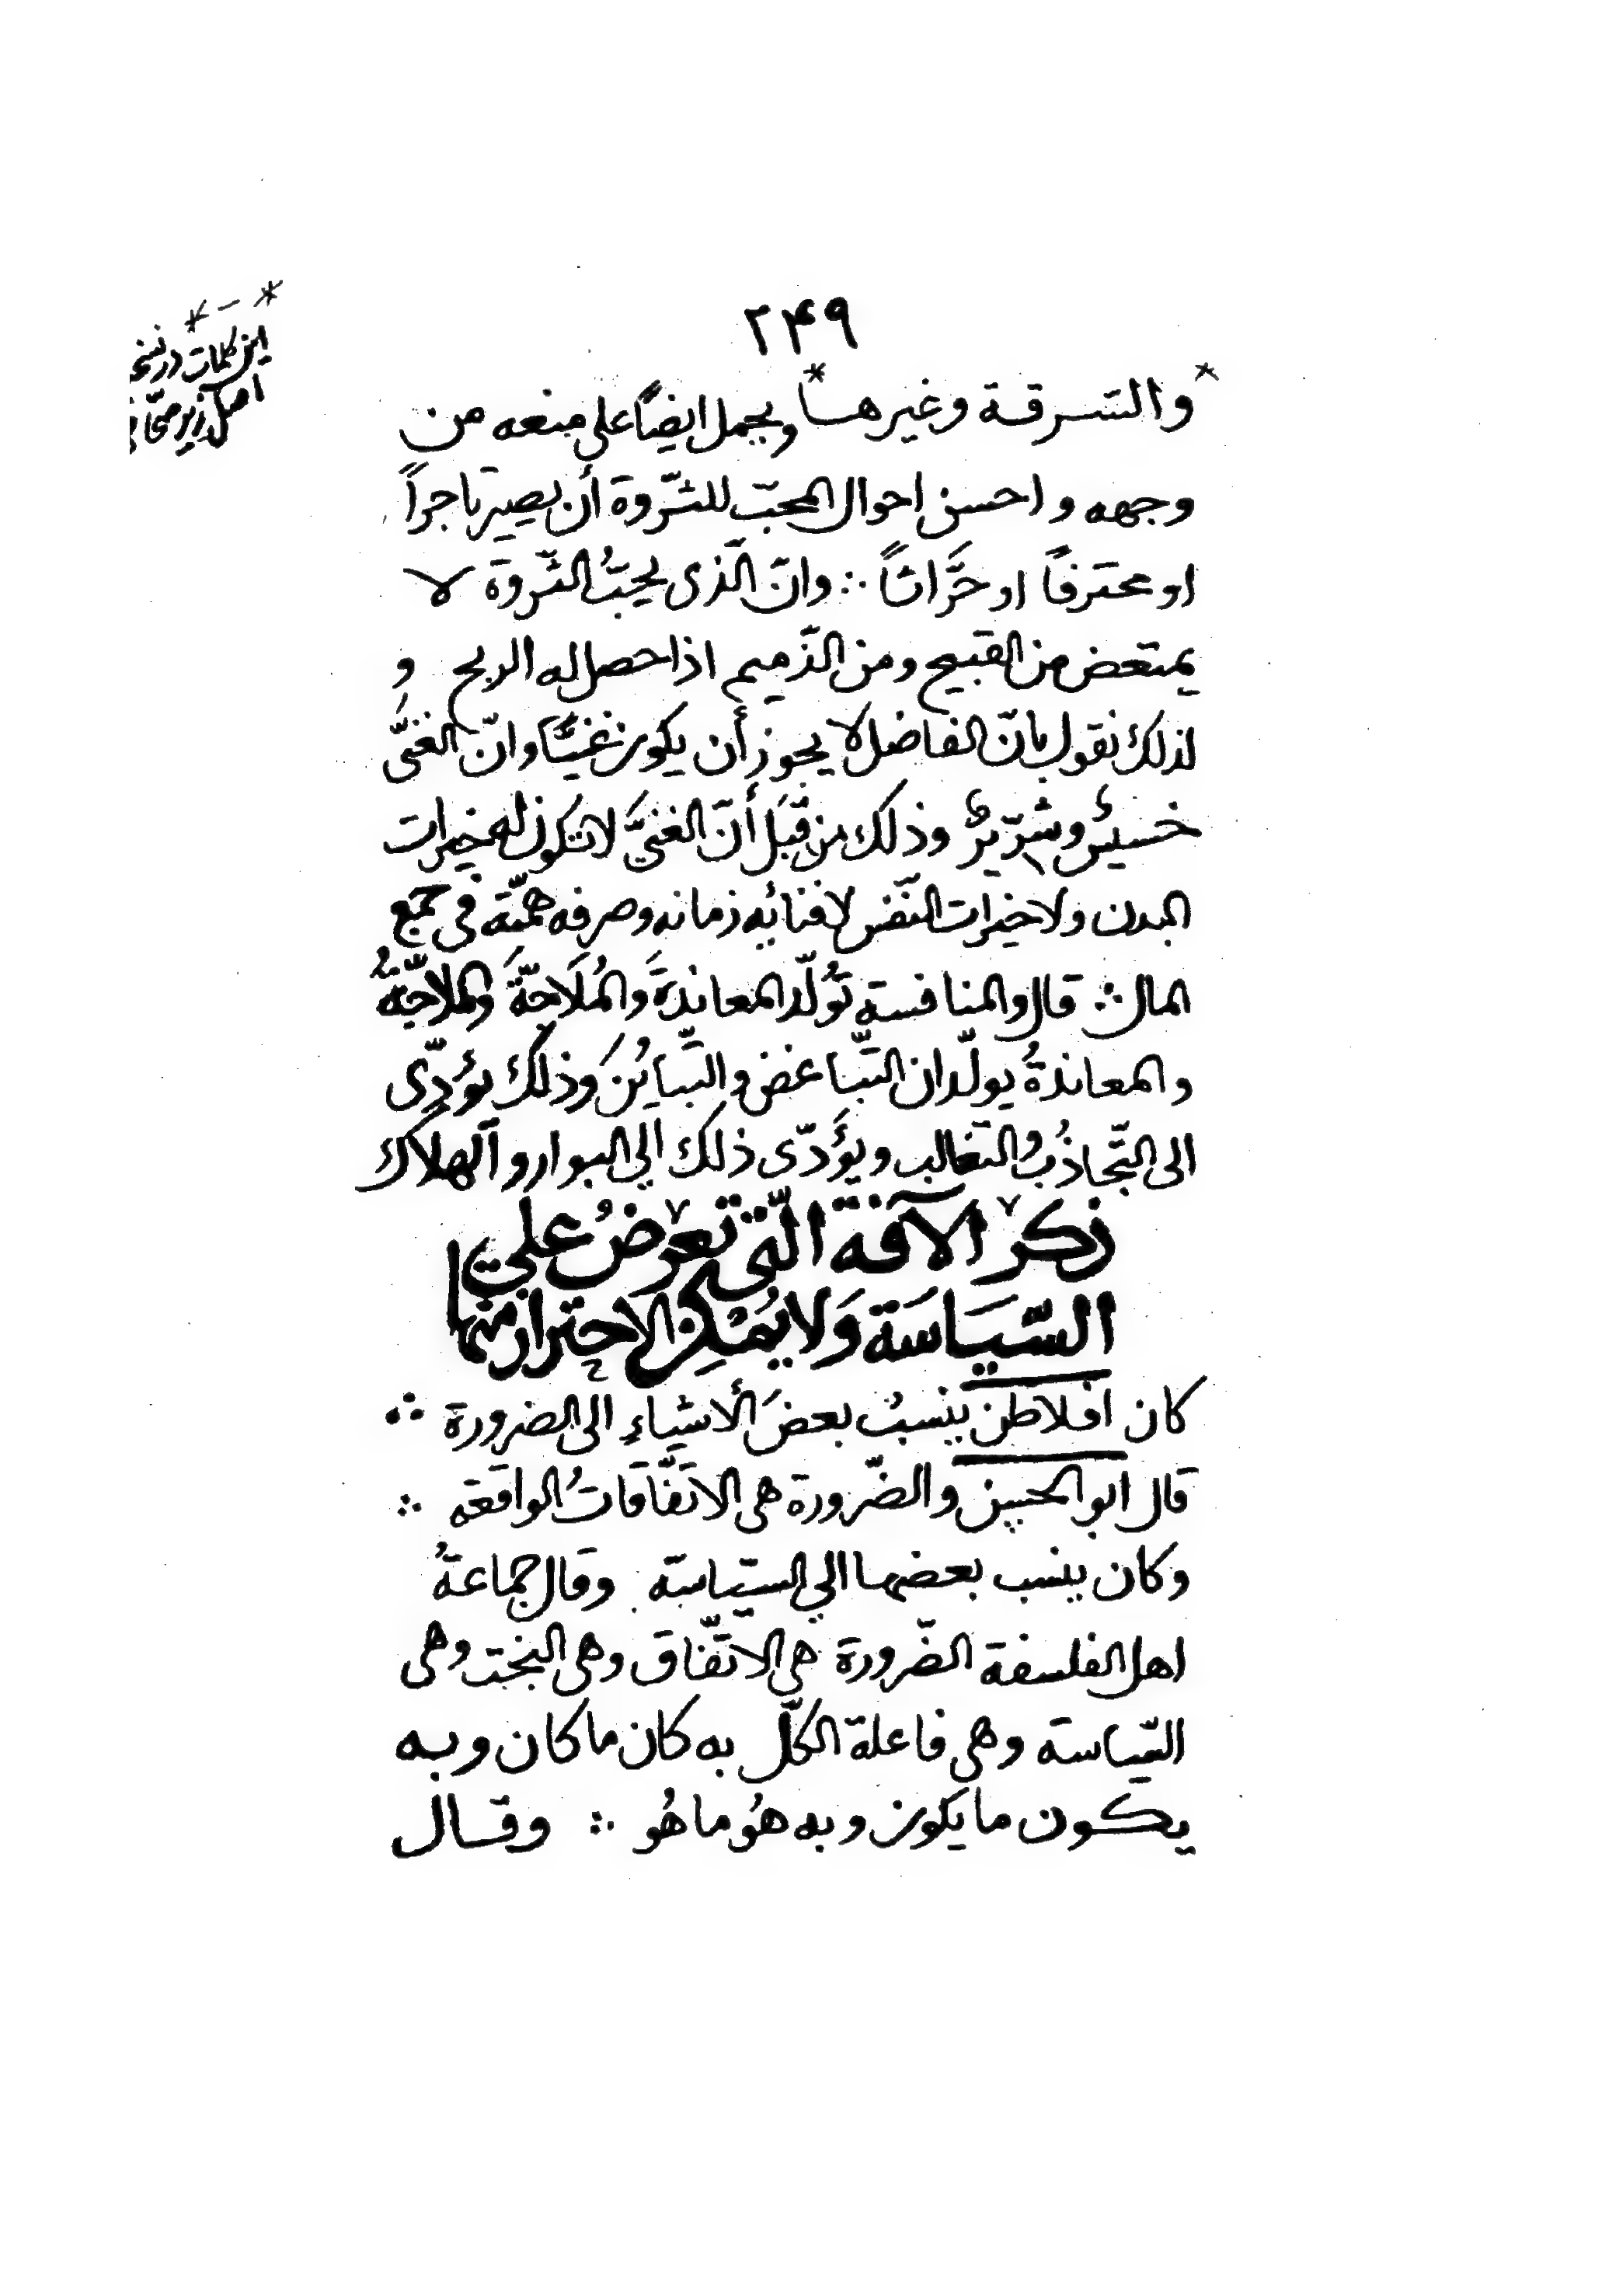 ۲۴۹
* والسرقة وغيرها * ويحمل ايضًا على منعه من
وجهه و احسن احوال المحبّ للثّروة أن يصير تاجرًا
او محترفًا او حرَّاثًا ∴ وانّ الّذى يحبّ الثّروة لا
يمتعض من القبيح ومن الذّميم اذا حصل له الربح و
لذلك نقول بانّ الفاضل لا يجوز أن يكون غنيًّا وانّ الغنىَّ
خسيسٌ وشرّيرٌ وذلك من قِبَل أنّ الغنىَّ لا تكون له خيرات
البدن ولا خيرات النّفس لافنائه زمانه وصرفه همّته فى جمع
المال ∴ قال والمنافسة تُولّد المعاندةَ والمُلَاجّةَ والملاجّةُ
والمعاندةُ يولّدان التّباغض والتّبايُنَ وذلك يؤدّى
الى التّجاذُب والتغالب ويؤَدّى ذلك الى البوار والهلاك
ذكر الآفة الّتى تعرضُ على
السّيَاسَة وَلا يُمْكِن الاحتراز منها
كان افلاطن ينسبُ بعضَ الأشياءِ الى الضرورة ∴
قال ابو الحسن والضّرورة هى الاتّفَاقَاتُ الواقعة ∴
وكان ينسب بعضها الى السّياسة وقال جماعةُ
اهل الفلسفة الضّرورة هى الاتّفاق وهى البخت وهى
السّياسة وهى فاعلة الكلّ به كان ما كان وبه
يكون ما يكون وبه هُو ما هُو ∴ وقال
* – *
اين كلمات در نسخ
اصل زير